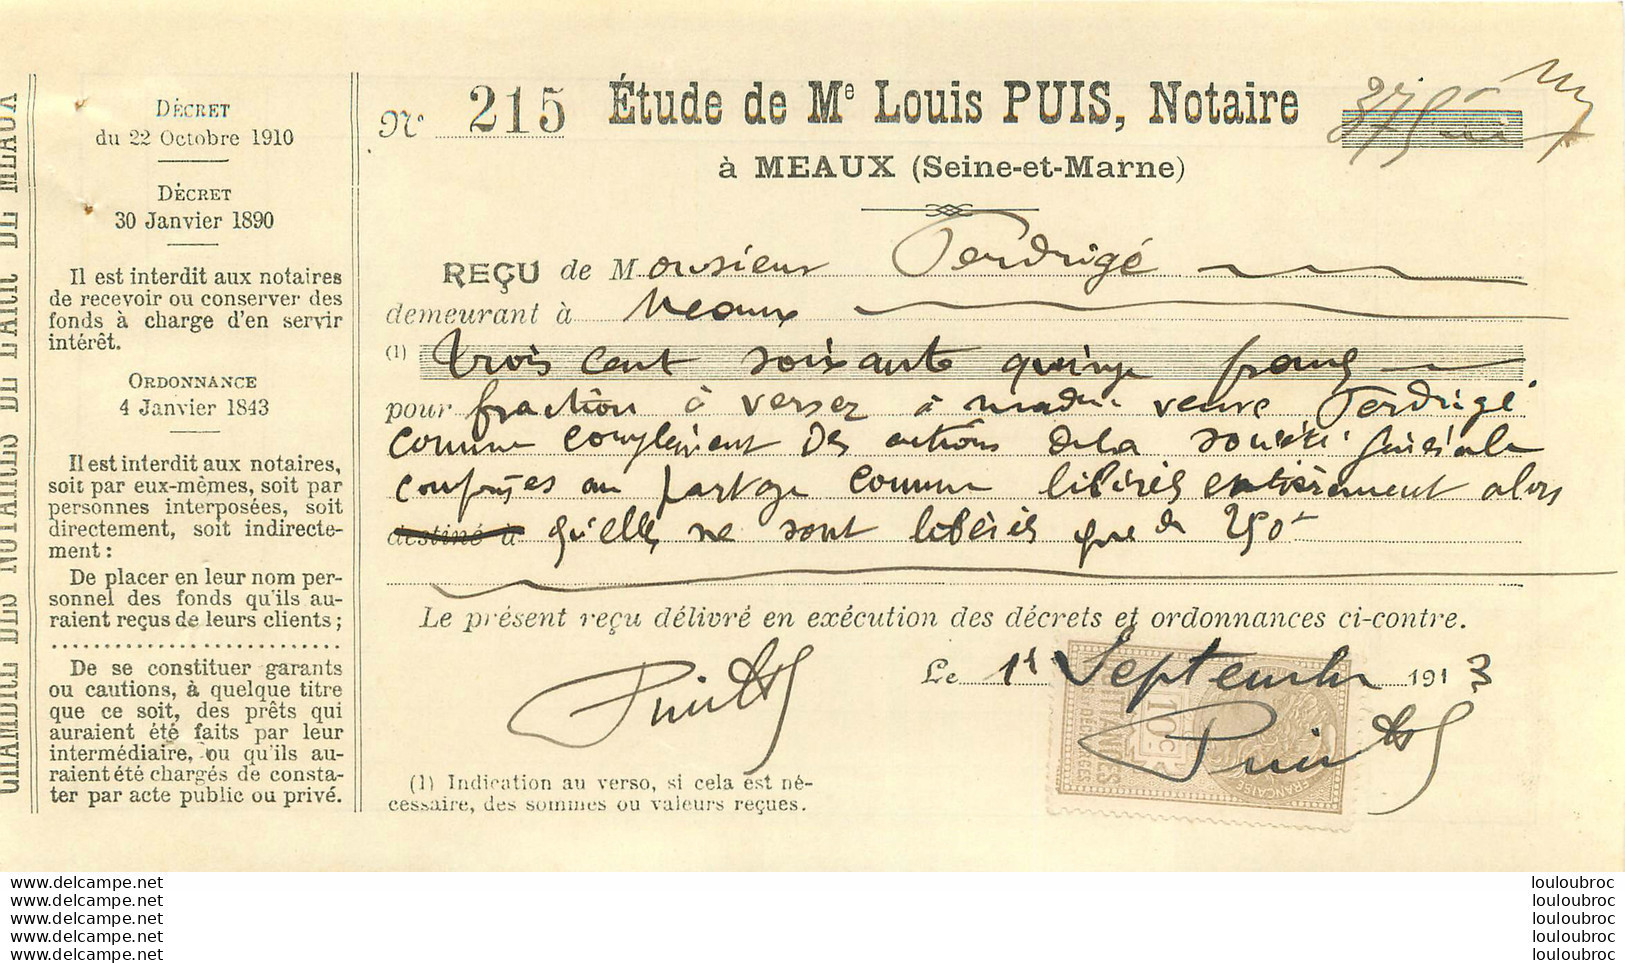 CHAMBRE DES NOTAIRES DE L'ARR. DE MEAUX
DÉCRET
du 22 Octobre 1910
DÉCRET
30 Janvier 1890
Il est interdit aux notaires
de recevoir ou conserver des
fonds à charge d'en servir
intérêt.
ORDONNANCE
4 Janvier 1843
Il est interdit aux notaires,
soit par eux-mêmes, soit par
personnes interposées, soit
directement, soit indirecte-
ment :
De placer en leur nom per-
sonnel des fonds qu'ils au-
raient reçus de leurs clients ;
De se constituer garants
ou cautions, à quelque titre
que ce soit, des prêts qui
auraient été faits par leur
intermédiaire, ou qu'ils au-
raient été chargés de consta-
ter par acte public ou privé.
N° 215 Étude de Me Louis PUIS, Notaire
375
à MEAUX (Seine-et-Marne)
REÇU de Monsieur Perdrigé
demeurant à Meaux
(1) trois cent soixante quinze francs
pour fraction à verser à Madme veuve Perdrigé
comme complément des actions de la société générale
comprises au partage comme libérées entièrement alors
destiné à qu'elles ne sont libérées que de 250f
Le présent reçu délivré en exécution des décrets et ordonnances ci-contre.
Le 11 Septembre 1913
Puis
Puis
10 c
QUITTANCES
FRANÇAISE
(1) Indication au verso, si cela est né-
cessaire, des sommes ou valeurs reçues.
www.delcampe.net
www.delcampe.net
www.delcampe.net
www.delcampe.net
www.delcampe.net
louloubroc
louloubroc
louloubroc
louloubroc
louloubroc